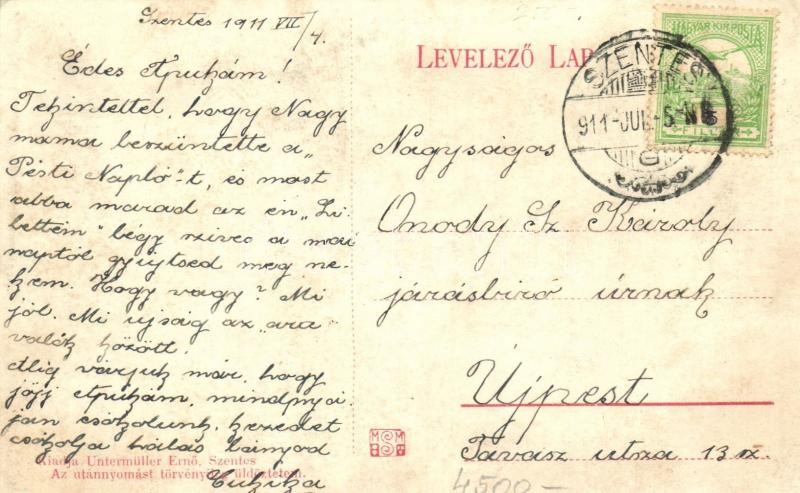 Szentes 1911 VII/4.
Édes Apukám!
Tekintettel, hogy Nagy
mama beszüntette a „
Pesti Napló"-t, és most
abba marad az én „Li
" légy szives a mai
naptól gyüjtsed meg ne-
kem. Hogy vagy? Mi
jól. Mi ujság az „ara
" között.
Alig várjuk már, hogy
jöjj Apukám, mindnyá-
jan csókolunk, kezedet
csókolja hálás lányod
Kiadja Untermüller Ernő, Szentes
Az utánnyomást törvényileg üldöztetem.
LEVELEZŐ LAP
MAGYAR KIR. POSTA
FILLÉR
SZENTES
911-JUL-5-N6
Nagyságos
Onody Sz. Károly
járásbiró úrnak
Újpest
Tavasz utca 13 sz.
4500-